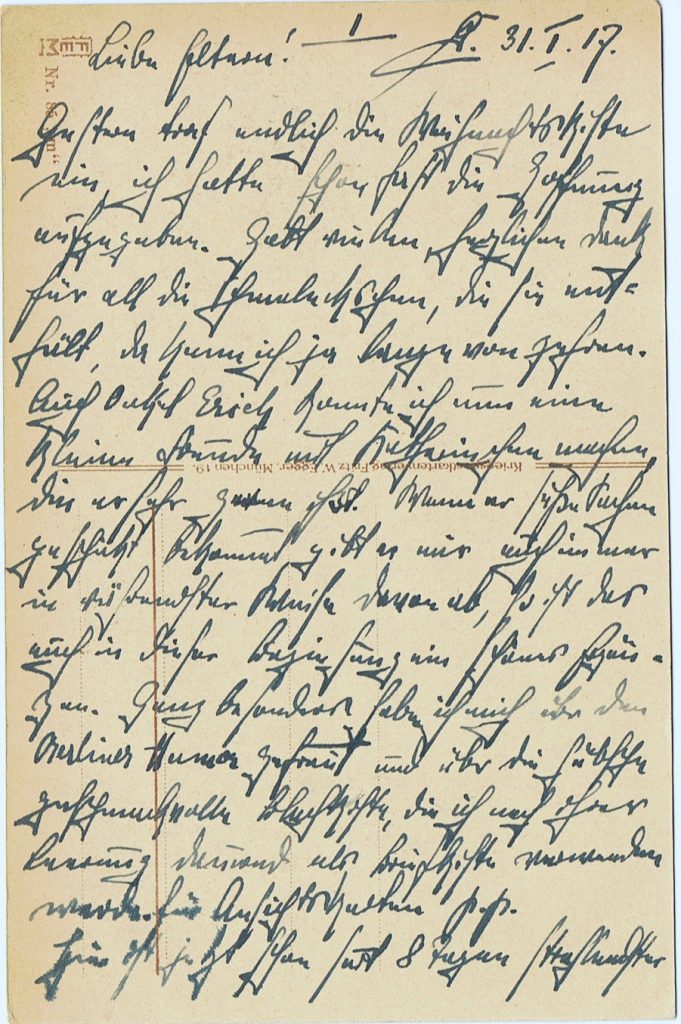 Liebe Eltern! I 31.I.17.
Gestern traf endlich die Weihnachtskiste
ein, ich hatte schon fast die Hoffnung
aufgegeben. Habt vielen, herzlichen Dank
für all die schmeckschen, die sie ent-
hält, da kann ich ja lange von zehren.
Auch Onkel Erich konnte ich nun eine
kleine Freude mit machen,
die er sehr gerne ißt. Wenn er süße Sachen
geschickt bekommt, gibt er mir auch immer
in rührendster Weise davon ab, so ist das
auch in dieser Beziehung ein schönes Ergän-
zen. Ganz besonders habe ich mich über den
Berliner Humor gefreut und über die hübsche
geschmackvolle Blechkiste, die ich nach ihrer
Leerung dauernd als Briefkiste verwenden
werde. für Ansichtskarten p.p.
Hier ist jetzt schon seit 8 Tagen strahlendster
FEM Nr.
Kriegspostkartenverlag Fritz W. Egger, München 19.